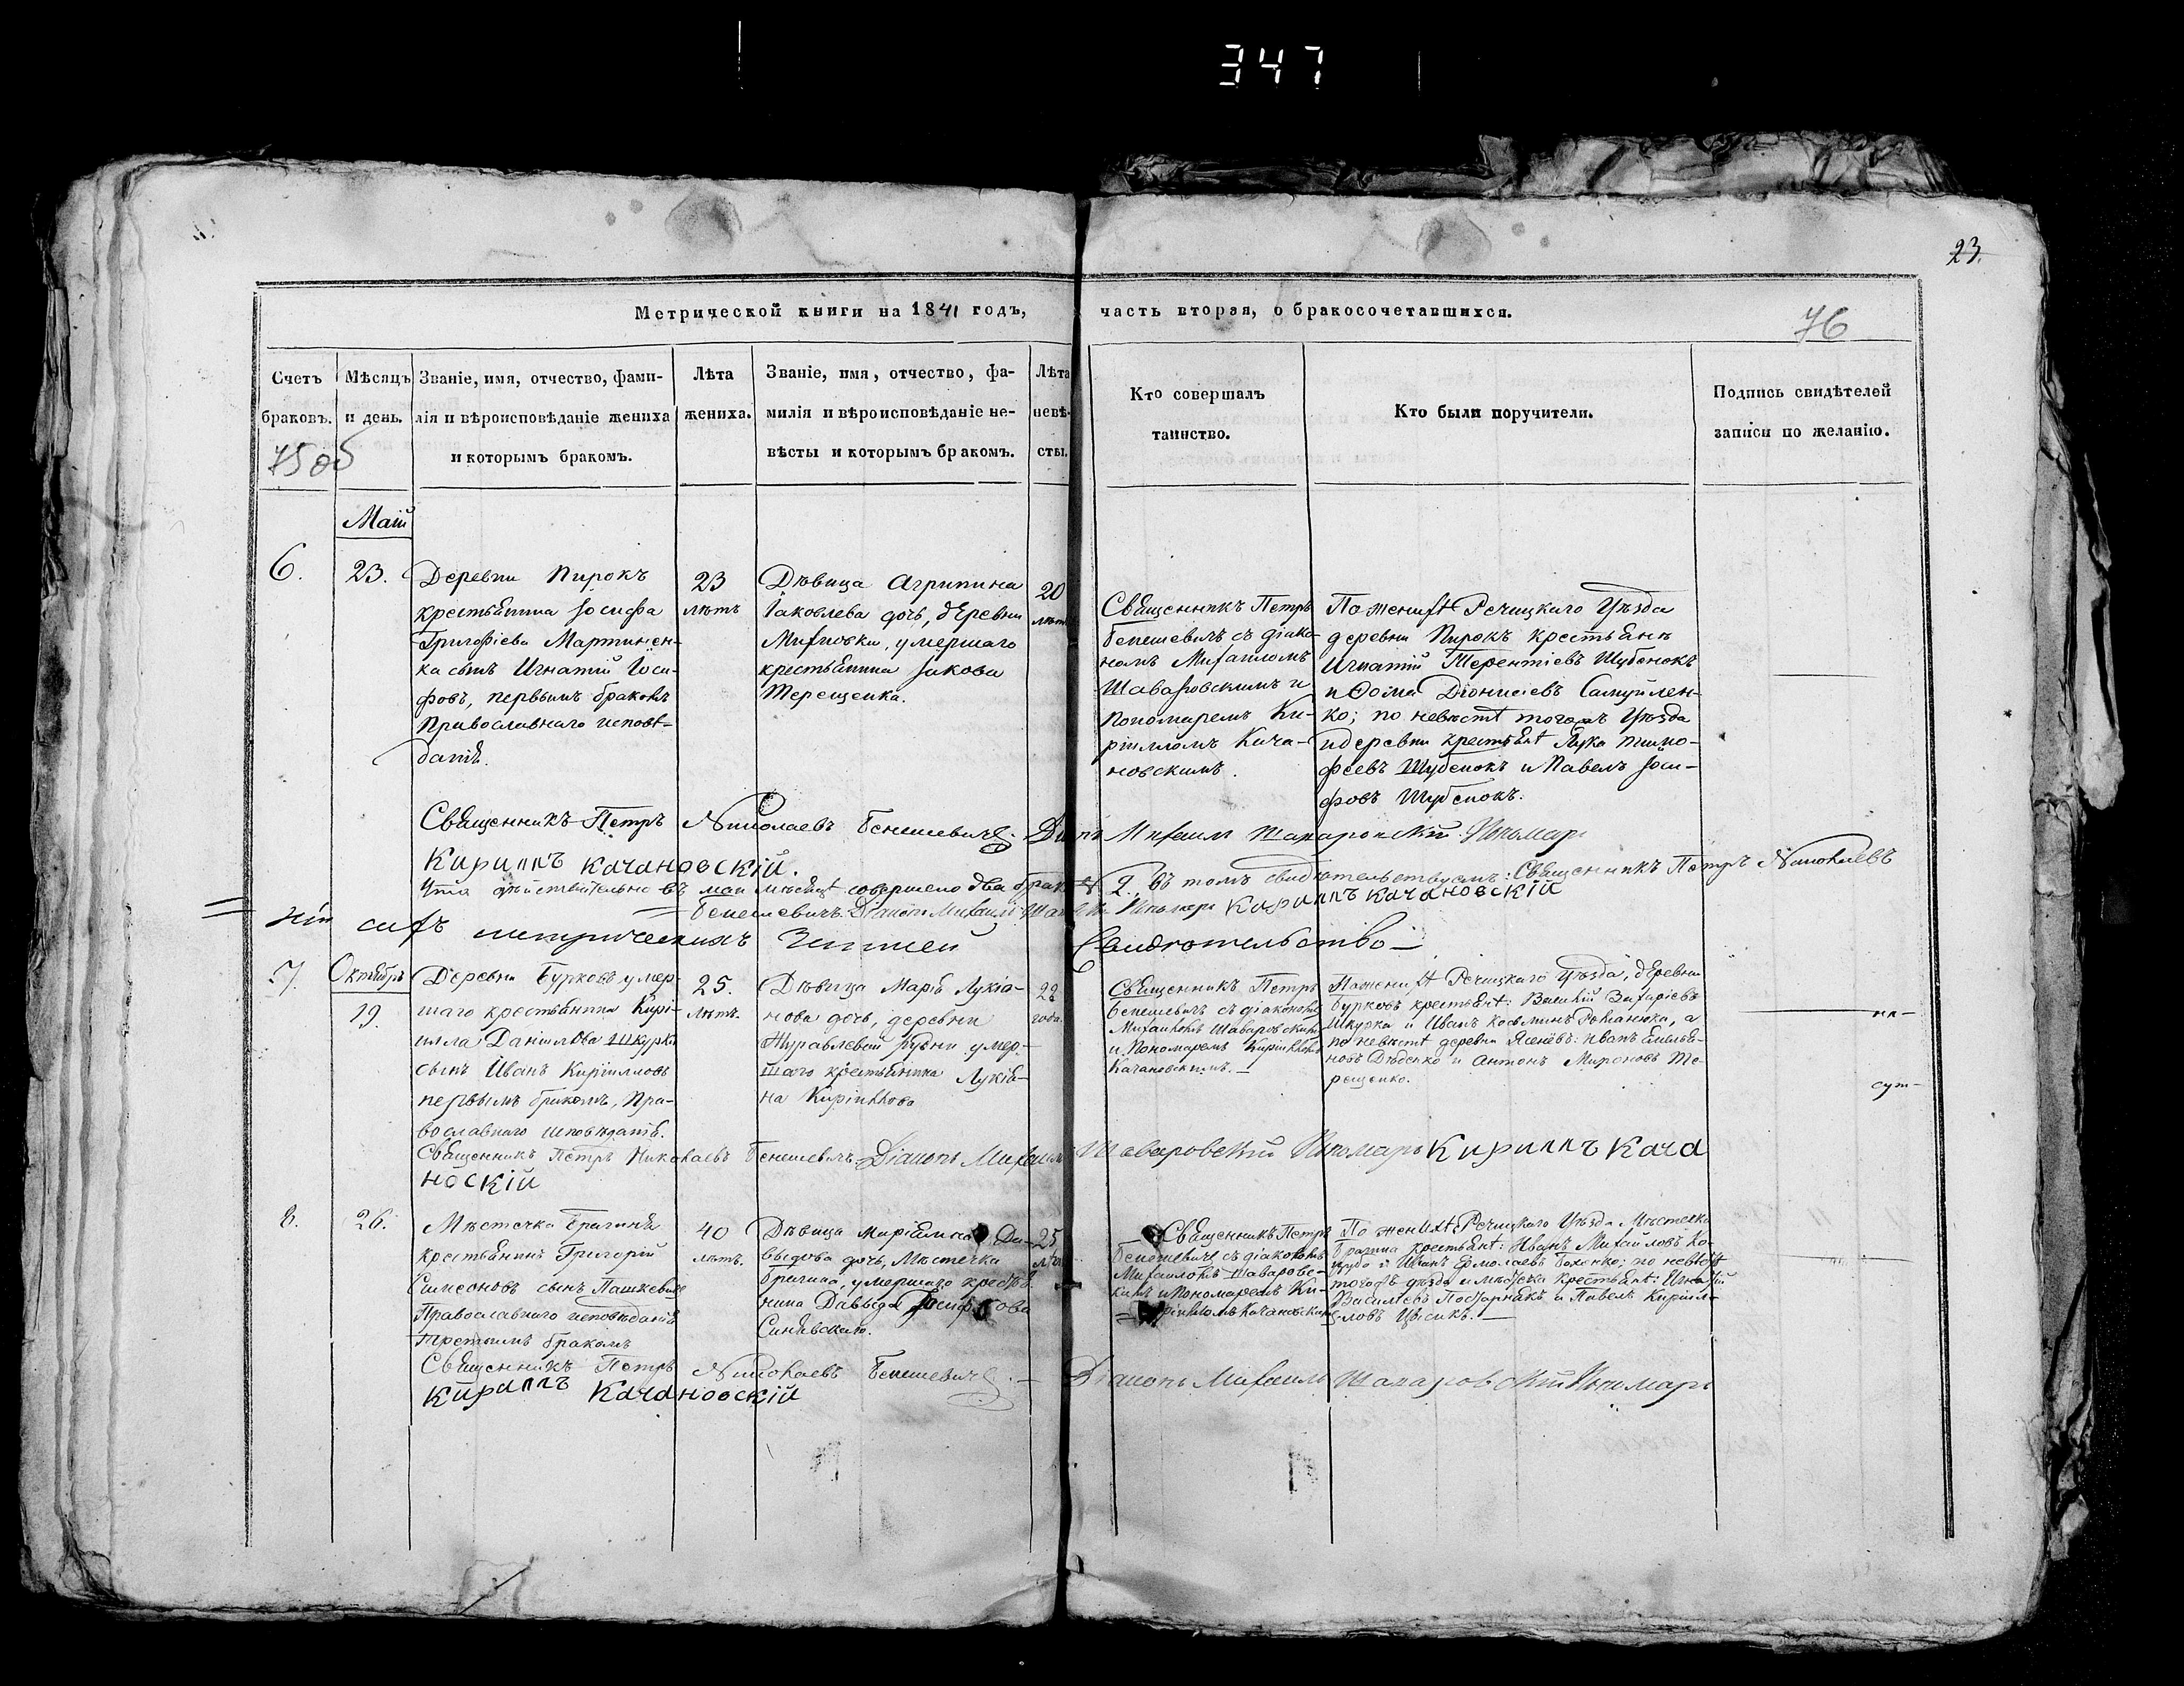 347
23.
Метрической книги на 1841 годъ, часть вторая, о бракосочетавшихся.
76
Счетъ браковъ.
75 об
Мѣсяцъ и день.
Званіе, имя, отчество, фами-
лія и вѣроисповѣданіе жениха
и которымъ бракомъ.
Лѣта
жениха.
Званіе, имя, отчество, фа-
милія и вѣроисповѣданіе не-
вѣсты и которымъ бракомъ.
Лѣта
невѣ-
сты.
Кто совершалъ
таинство.
Кто были поручители.
Подпись свидѣтелей
записи по желанію.
Маій
6.
23.
Деревни Пирокъ
крестьянина Іосифа
Григоріева Мартинен-
ка сынъ Игнатій Іоси-
фовъ, первымъ бракомъ
Православнаго исповѣ-
данія.
23
лѣтъ
Дѣвица Агрипина
Іаковлева дочь, деревни
умершаго
крестьянина Іакова
Терещенка.
20
лѣтъ
Священникъ Петръ
Бенешевичъ съ діако-
номъ Михаиломъ
Шаваровскимъ и
Пономаремъ Ки-
рилломъ Кача-
новскимъ.
По женихѣ Речицкаго Уѣзда
деревни Пирокъ крестьяне
Игнатій Терентіевъ Шубенокъ
и Фома Діонисіевъ Самуйлен-
ко; по невѣстѣ тогожъ Уѣзда
и деревни крестьянѣ Лука Тимо-
феевъ Шубенокъ и Павелъ Іоси-
фовъ Шубенокъ.
Священникъ Петръ Николаевъ Бенешевичъ. Михаилъ Шаваровскій Пономарь
Кириллъ Качановскій.
Что дѣйствительно въ маи мѣсяцѣ совершено два брака № 2. въ томъ свидѣтельствуемъ: Священникъ Петръ Николаевъ
Бенешевичъ. Діаконъ Михаилъ Пономарь Кириллъ Качановскій
сихъ метрическихъ
7.
Октября
19.
Деревни Бурковъ умер-
шаго крестьянина Кири-
илла Даніилова Шкурка
сынъ Иванъ Кирилловъ
первымъ бракомъ, Пра-
вославнаго исповѣданія.
25.
лѣтъ.
Дѣвица Марія Лукіа-
нова дочь, деревни
умер-
шаго крестьянина Лукія-
на Кириллова
22
года
Священникъ Петръ
Бенешевичъ съ діакономъ
Михаиломъ Шаваровскимъ
и Пономаремъ Кирилломъ
Качановскимъ. —
По женихѣ Речицкаго Уѣзда, деревни
Бурковъ крестьянѣ: Василій Захаріевъ
Шкурка и Иванъ Козьминъ Романюка, а
по невѣстѣ деревни Ясеневъ: Иванъ Емелья-
новъ Дяденко и Антонъ Мироновъ Те-
рещенко.
Священникъ Петръ Николаевъ Бенешевичъ Діаконъ Михаилъ Шаваровскій Пономарь Кириллъ Кача
носкій
8.
26.
Мѣстечка Брагиня
крестьянинъ Григорій
Симеоновъ сынъ Пашкевичъ
Православнаго исповѣданія
третьимъ бракомъ
40
лѣтъ.
Дѣвица Маріамна Да-
выдова дочь, Мѣстечка
Брагиня, умершаго крестья-
нина Давыда
Синявскаго.
25
Священникъ Петръ
Бенешевичъ съ діакономъ
Михаиломъ Шаваровс-
кимъ и Пономаремъ Ки-
рилломъ Качановскимъ
По женихѣ Речицкаго Уѣзда Мѣстечка
Брагина крестьянѣ: Иванъ Михайловъ Ко-
и Иванъ Ермолаевъ по невѣстѣ
тогожъ уѣзда и мѣстечка крестьянѣ: Игнатій
Васильевъ и Павелъ Кирил-
ловъ —
Священникъ Петръ Николаевъ Бенешевичъ. — Діаконъ Михаилъ Шаваровскій Пономарь
Кириллъ Качановскій